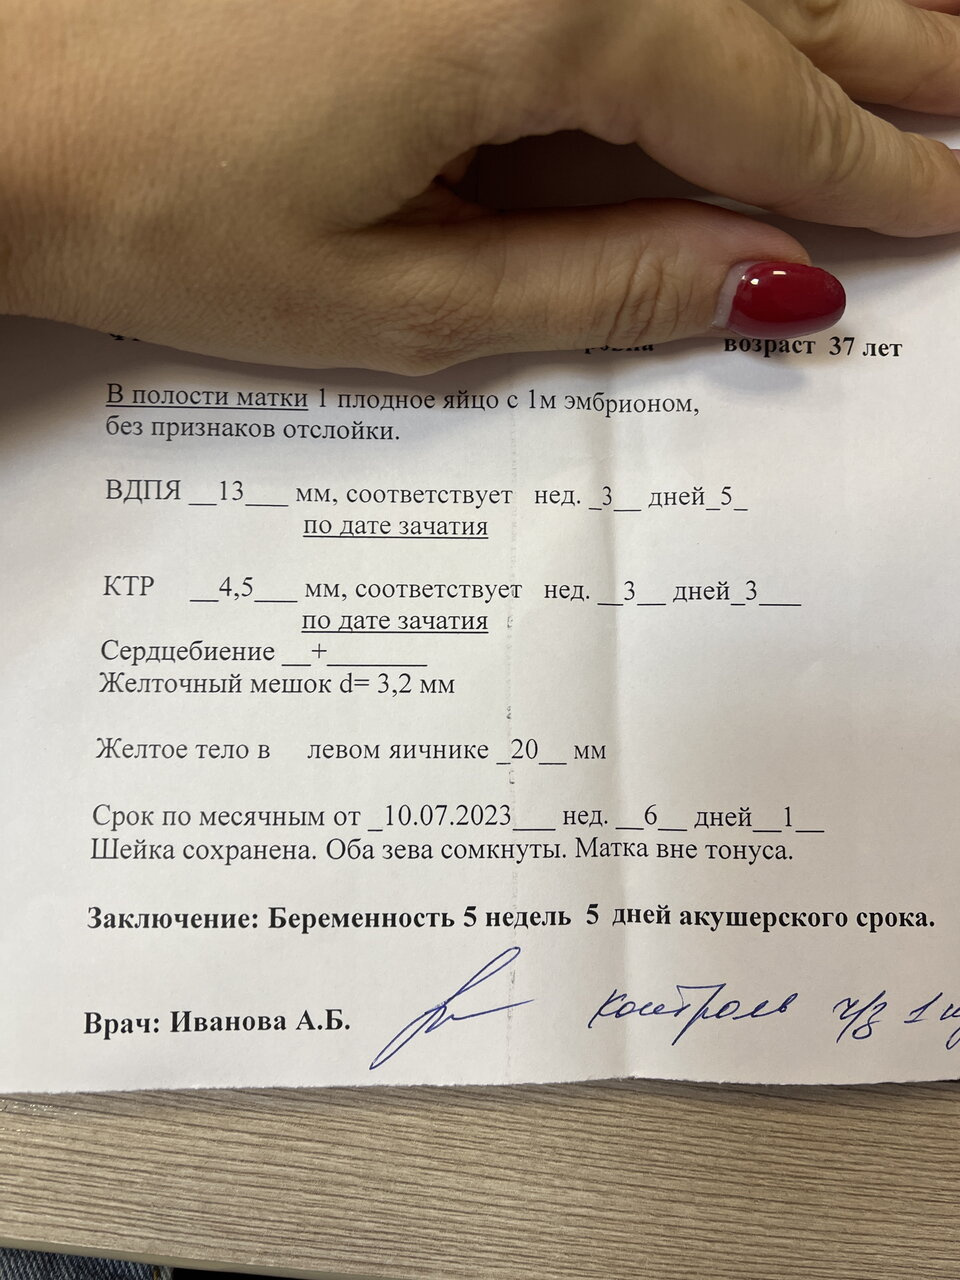 возраст 37 лет
В полости матки 1 плодное яйцо с 1м эмбрионом,
без признаков отслойки.
ВДПЯ __13___ мм, соответствует нед. _3__ дней_5_
по дате зачатия
КТР __4,5___ мм, соответствует нед. __3__ дней_3___
по дате зачатия
Сердцебиение __+_______
Желточный мешок d= 3,2 мм
Желтое тело в левом яичнике _20__ мм
Срок по месячным от _10.07.2023___ нед. __6__ дней__1__
Шейка сохранена. Оба зева сомкнуты. Матка вне тонуса.
Заключение: Беременность 5 недель 5 дней акушерского срока.
Врач: Иванова А.Б. контроль ч/з 1